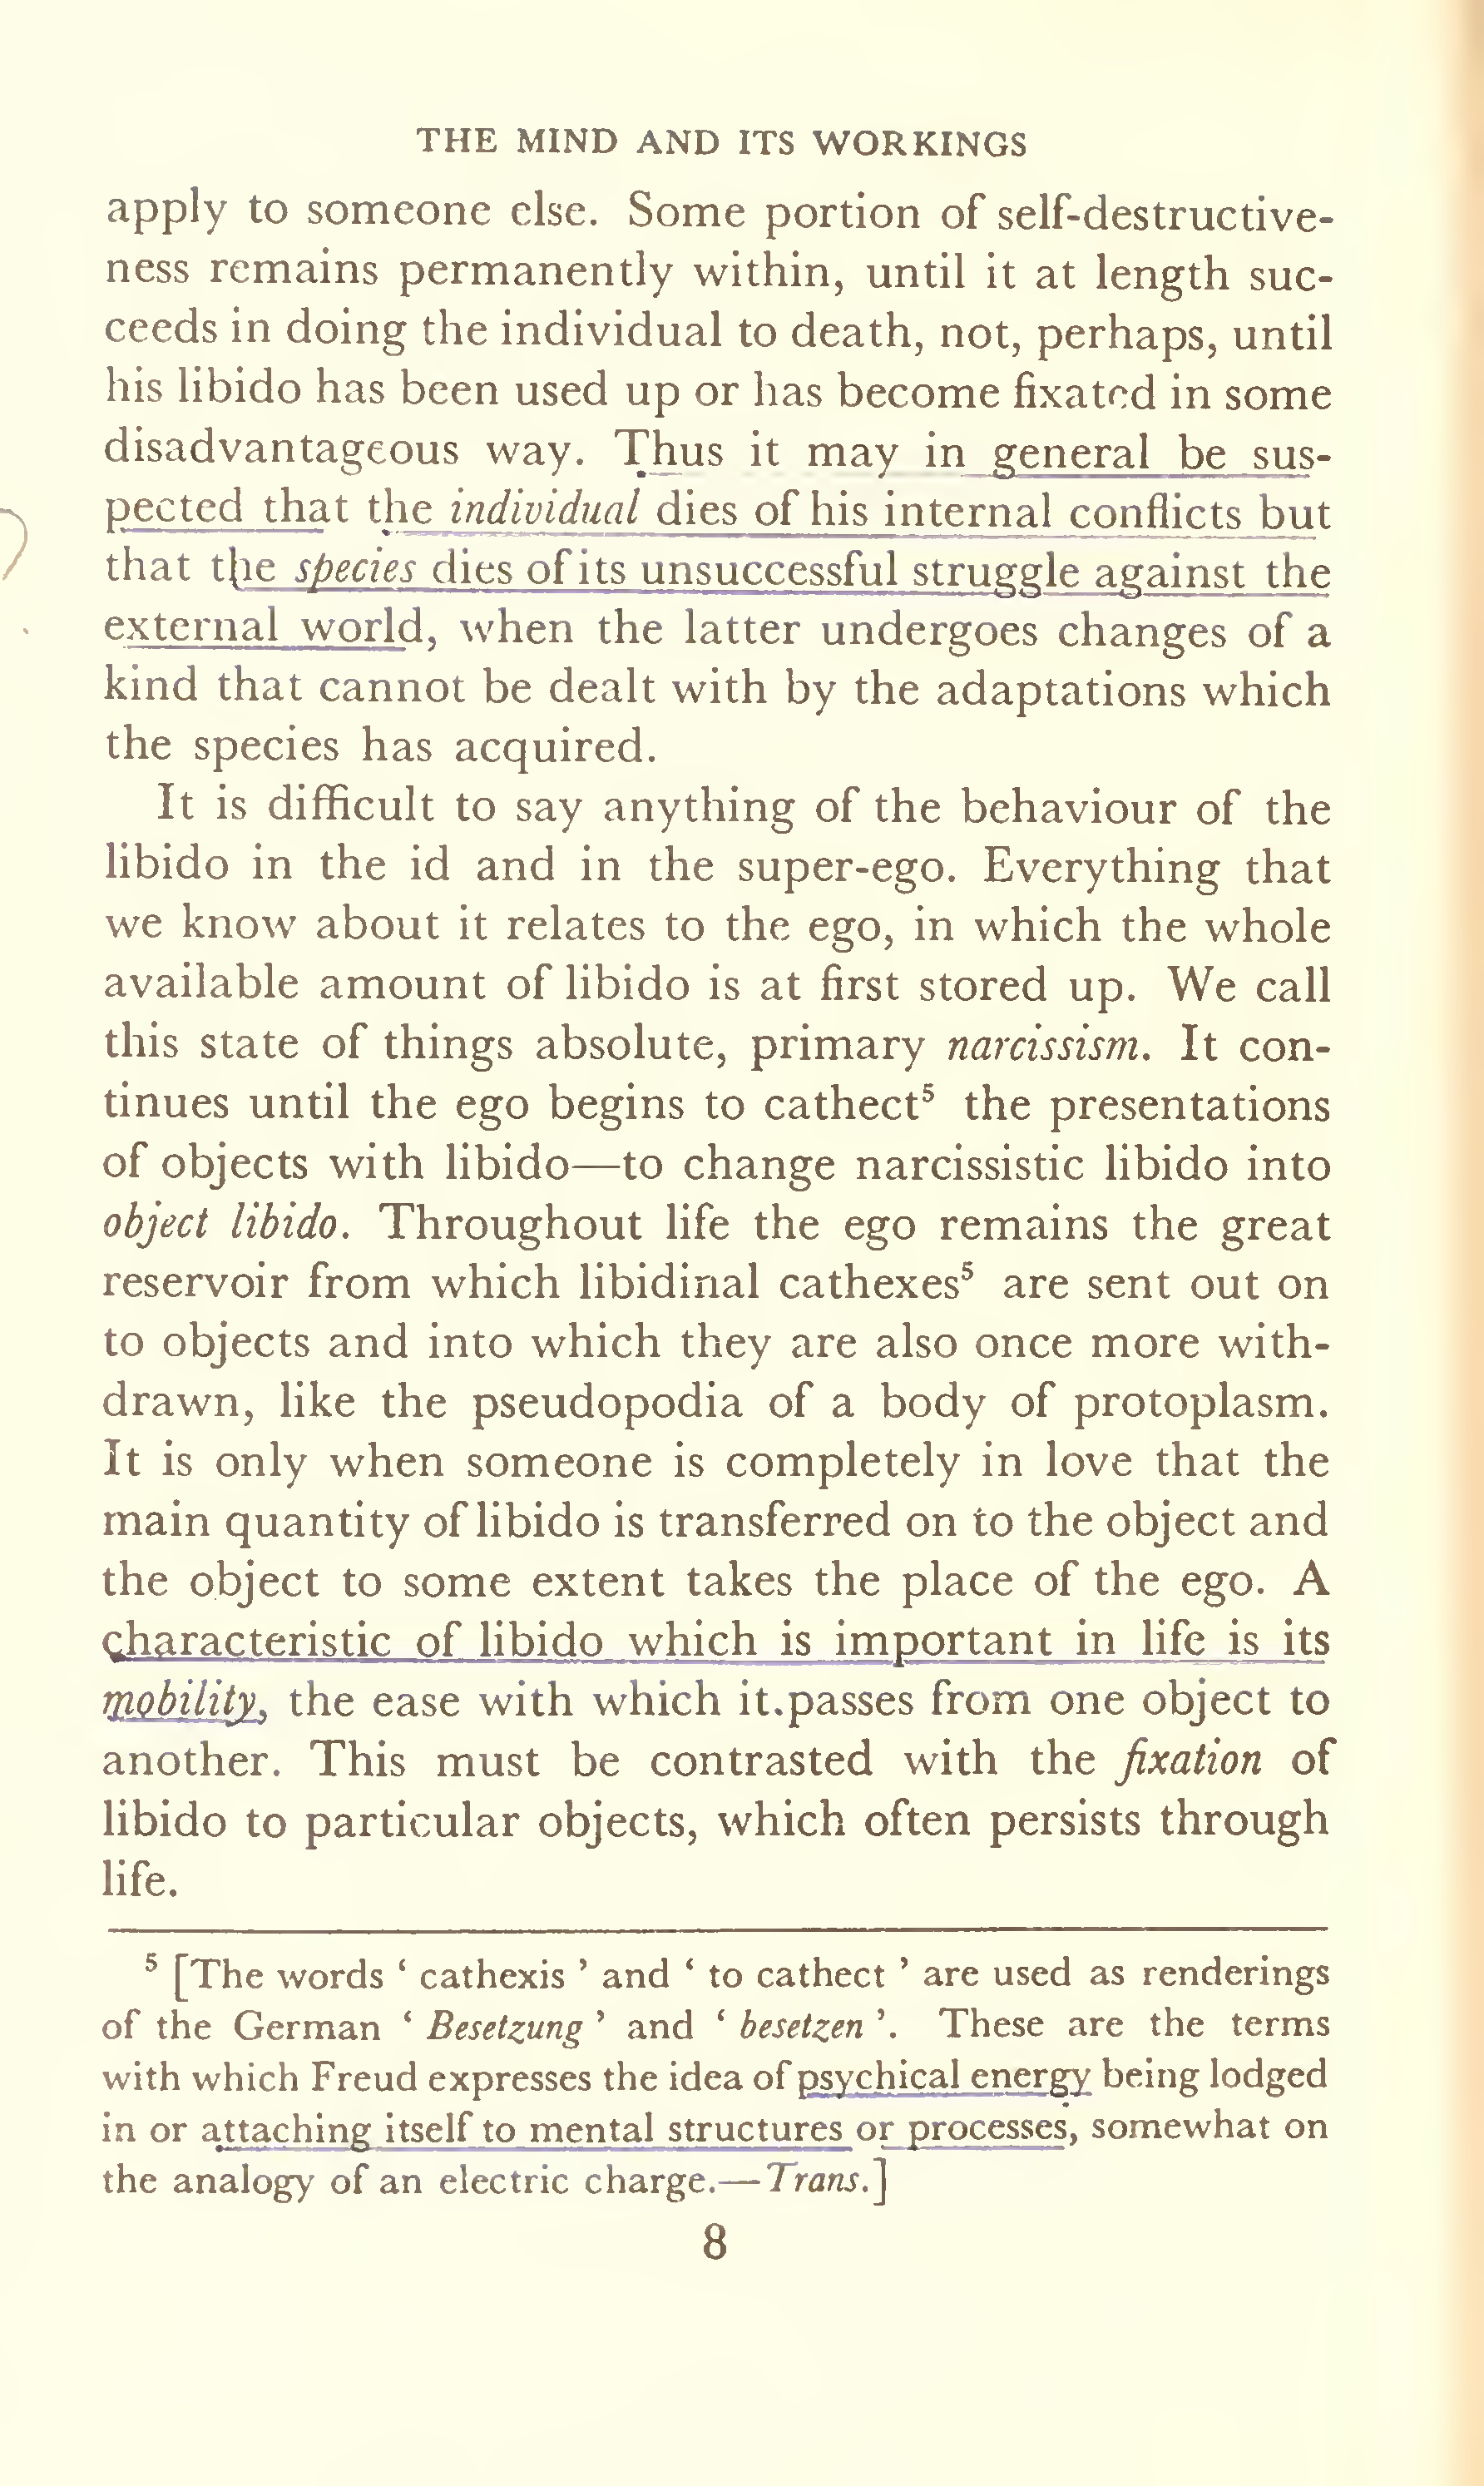 THE MIND AND ITS WORKINGS
apply to someone else. Some portion of self-destructive-
ness remains permanently within, until it at length suc-
ceeds in doing the individual to death, not, perhaps, until
his libido has been used up or has become fixated in some
disadvantageous way. Thus it may in general be sus-
pected that the individual dies of his internal conflicts but
that the species dies of its unsuccessful struggle against the
external world, when the latter undergoes changes of a
kind that cannot be dealt with by the adaptations which
the species has acquired.
It is difficult to say anything of the behaviour of the
libido in the id and in the super-ego. Everything that
we know about it relates to the ego, in which the whole
available amount of libido is at first stored up. We call
this state of things absolute, primary narcissism. It con-
tinues until the ego begins to cathect⁵ the presentations
of objects with libido—to change narcissistic libido into
object libido. Throughout life the ego remains the great
reservoir from which libidinal cathexes⁵ are sent out on
to objects and into which they are also once more with-
drawn, like the pseudopodia of a body of protoplasm.
It is only when someone is completely in love that the
main quantity of libido is transferred on to the object and
the object to some extent takes the place of the ego. A
characteristic of libido which is important in life is its
mobility, the ease with which it passes from one object to
another. This must be contrasted with the fixation of
libido to particular objects, which often persists through
life.
⁵ [The words ‘ cathexis ’ and ‘ to cathect ’ are used as renderings
of the German ‘ Besetzung ’ and ‘ besetzen ’. These are the terms
with which Freud expresses the idea of psychical energy being lodged
in or attaching itself to mental structures or processes, somewhat on
the analogy of an electric charge.—Trans.]
8